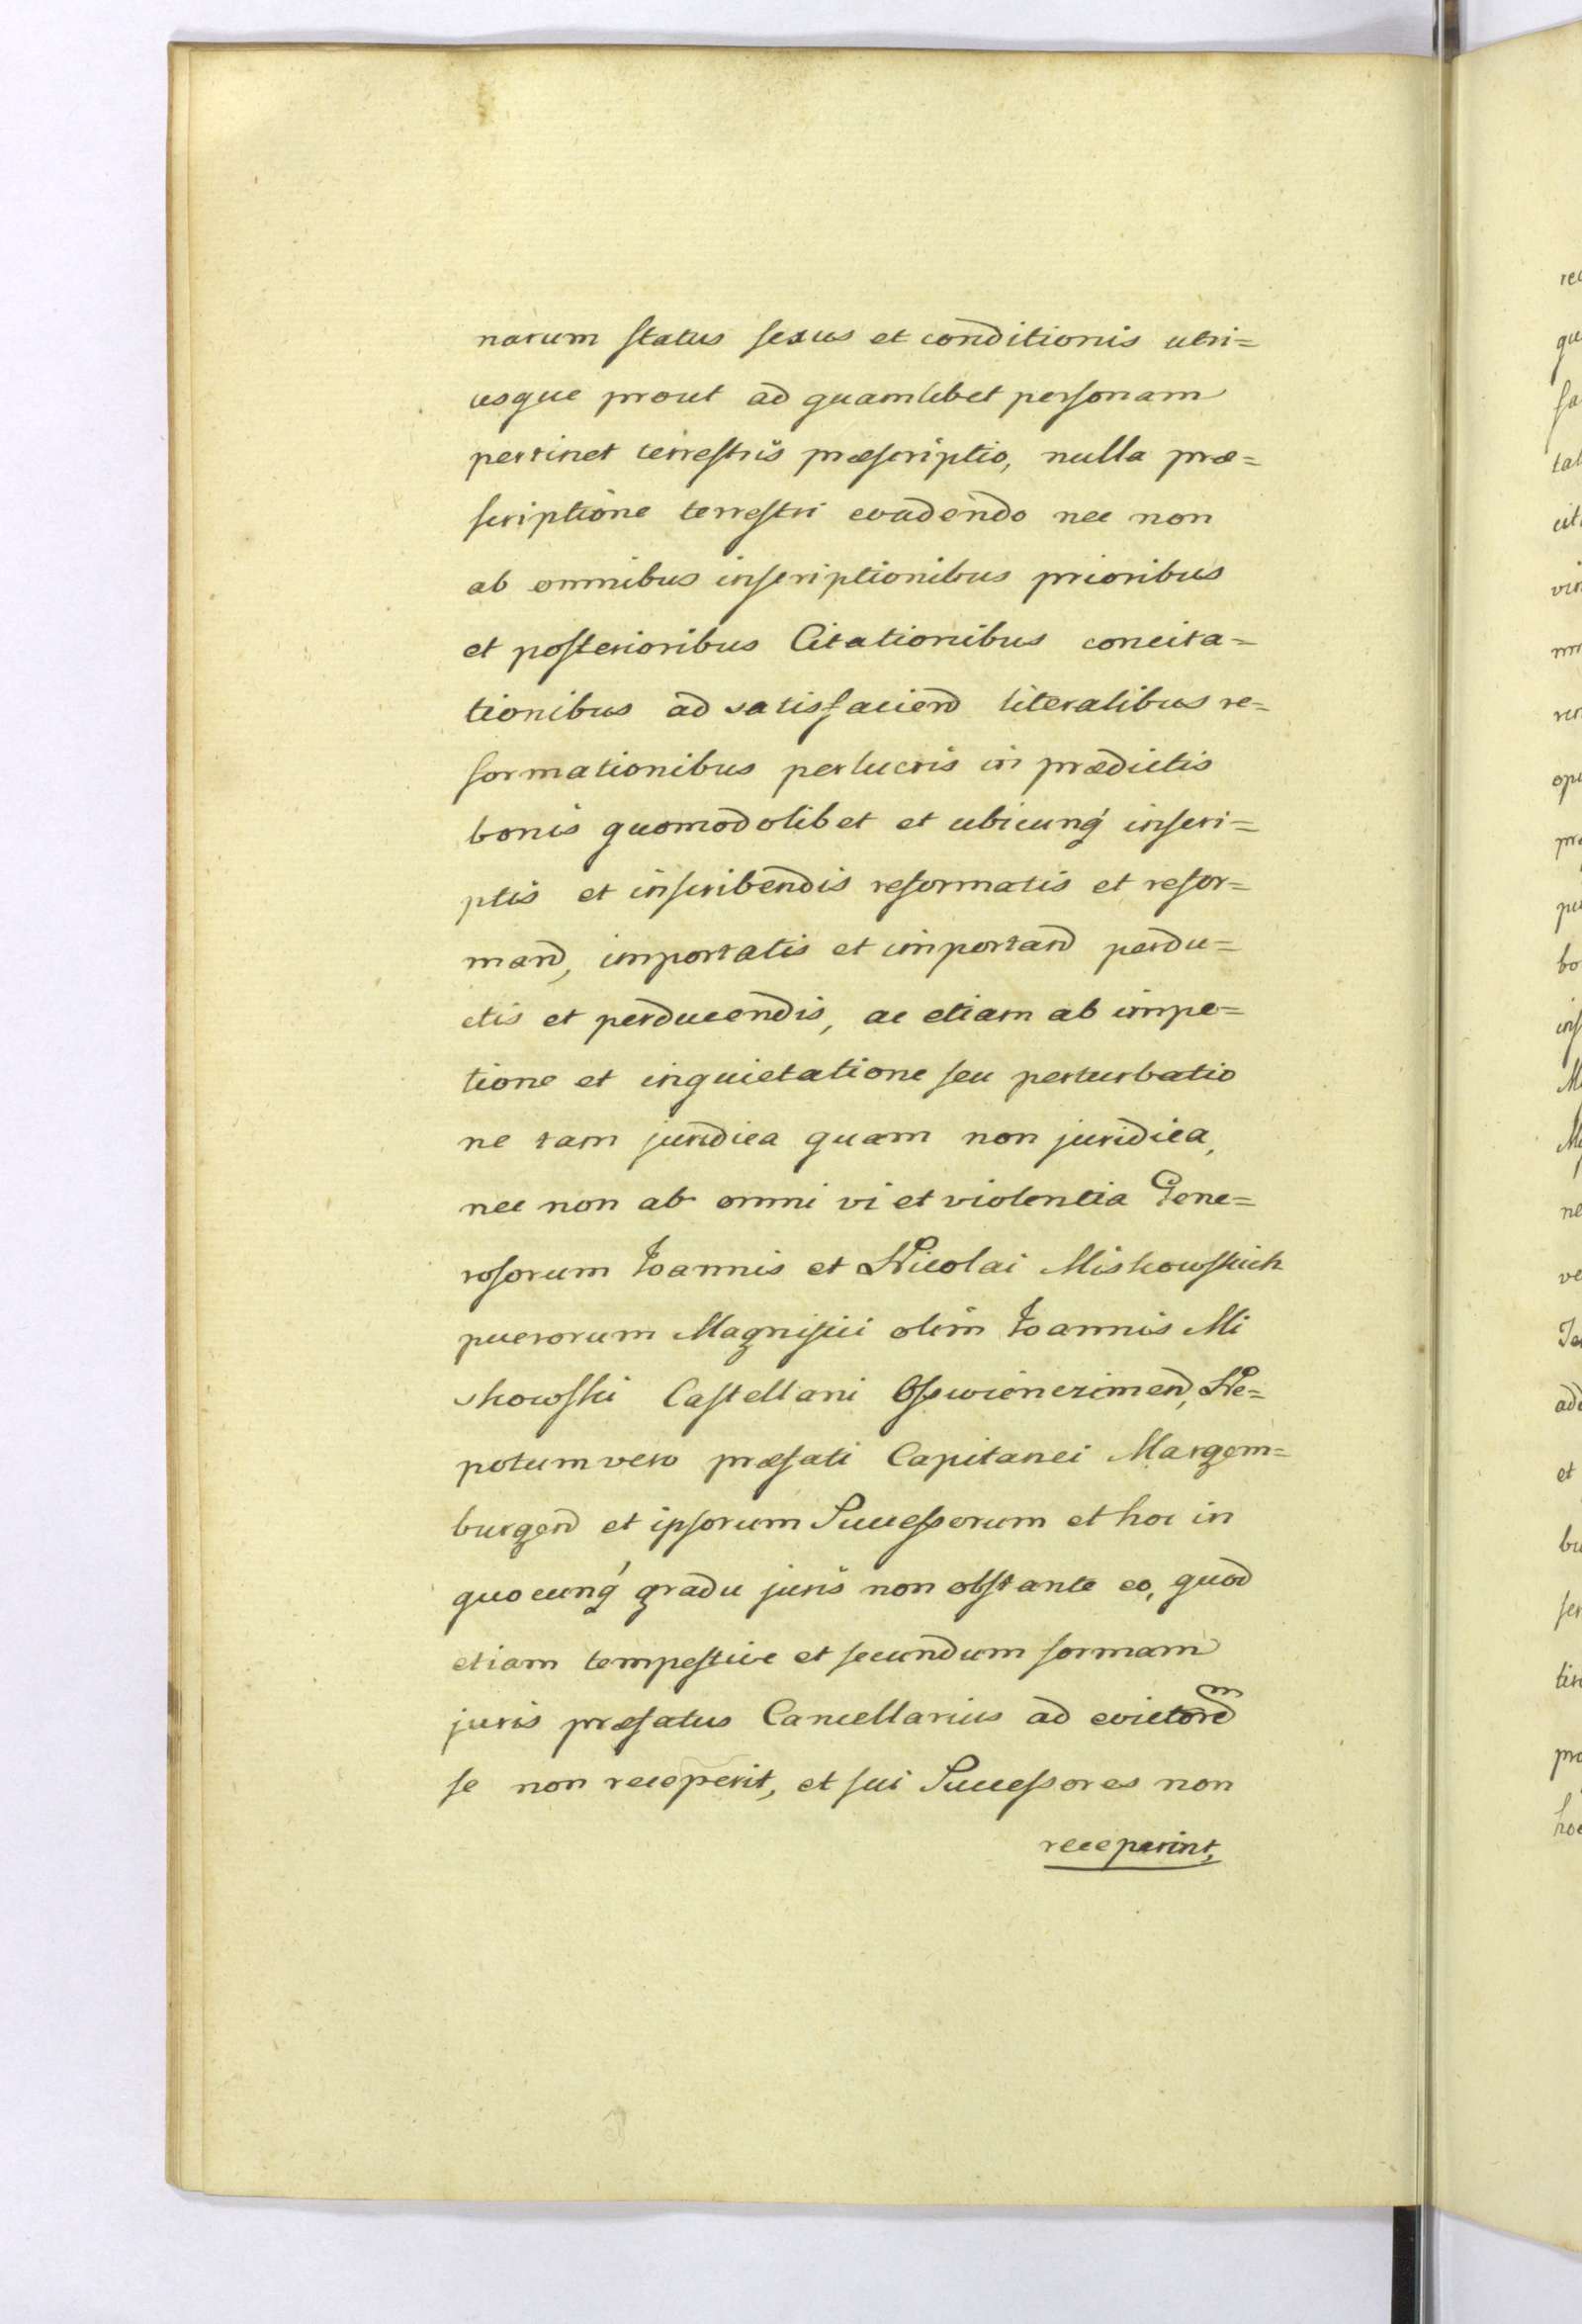 narum status sexus et conditionis utri=
usque prout ad quamlibet personam
pertinet terrestris præscriptio, nulla præ=
scriptione terrestri evadendo nec non
ab omnibus inscriptionibus prioribus
et posterioribus Citationibus concita=
tionibus ad satisfaciend literalibus re=
formationibus perlucris in prædictis
bonis quomodolibet et ubicunq́ inscri=
ptis et inscribendis reformatis et refor=
mand, importatis et importand perdu=
ctis et perducendis, ac etiam ab impe=
tione et inquietatione seu perturbatio
ne tam juridica quam non juridica,
nec non ab omni vi et violentia Gene=
rosorum Joannis et Nicolai Miskowskich
puerorum Magnifici olim Joannis Mi
skowski Castellani Osswienczimend, Ne=
potum vero præfati Capitanei Margem=
burgend et ipsorum Successorum et hoc in
quocunq́ gradu juris non obstante eo, quod
etiam tempestive et secundum formam
juris præfatus Cancellarius ad evictorem
se non receperit, et sui Successores non
receperint,
rec
qu
fa
tal
cit
vin
mn
rer
opu
pro
pu
bo
ins
M
My
ne
ve
Ja
add
et
bu
ser
tin
pro
hoc